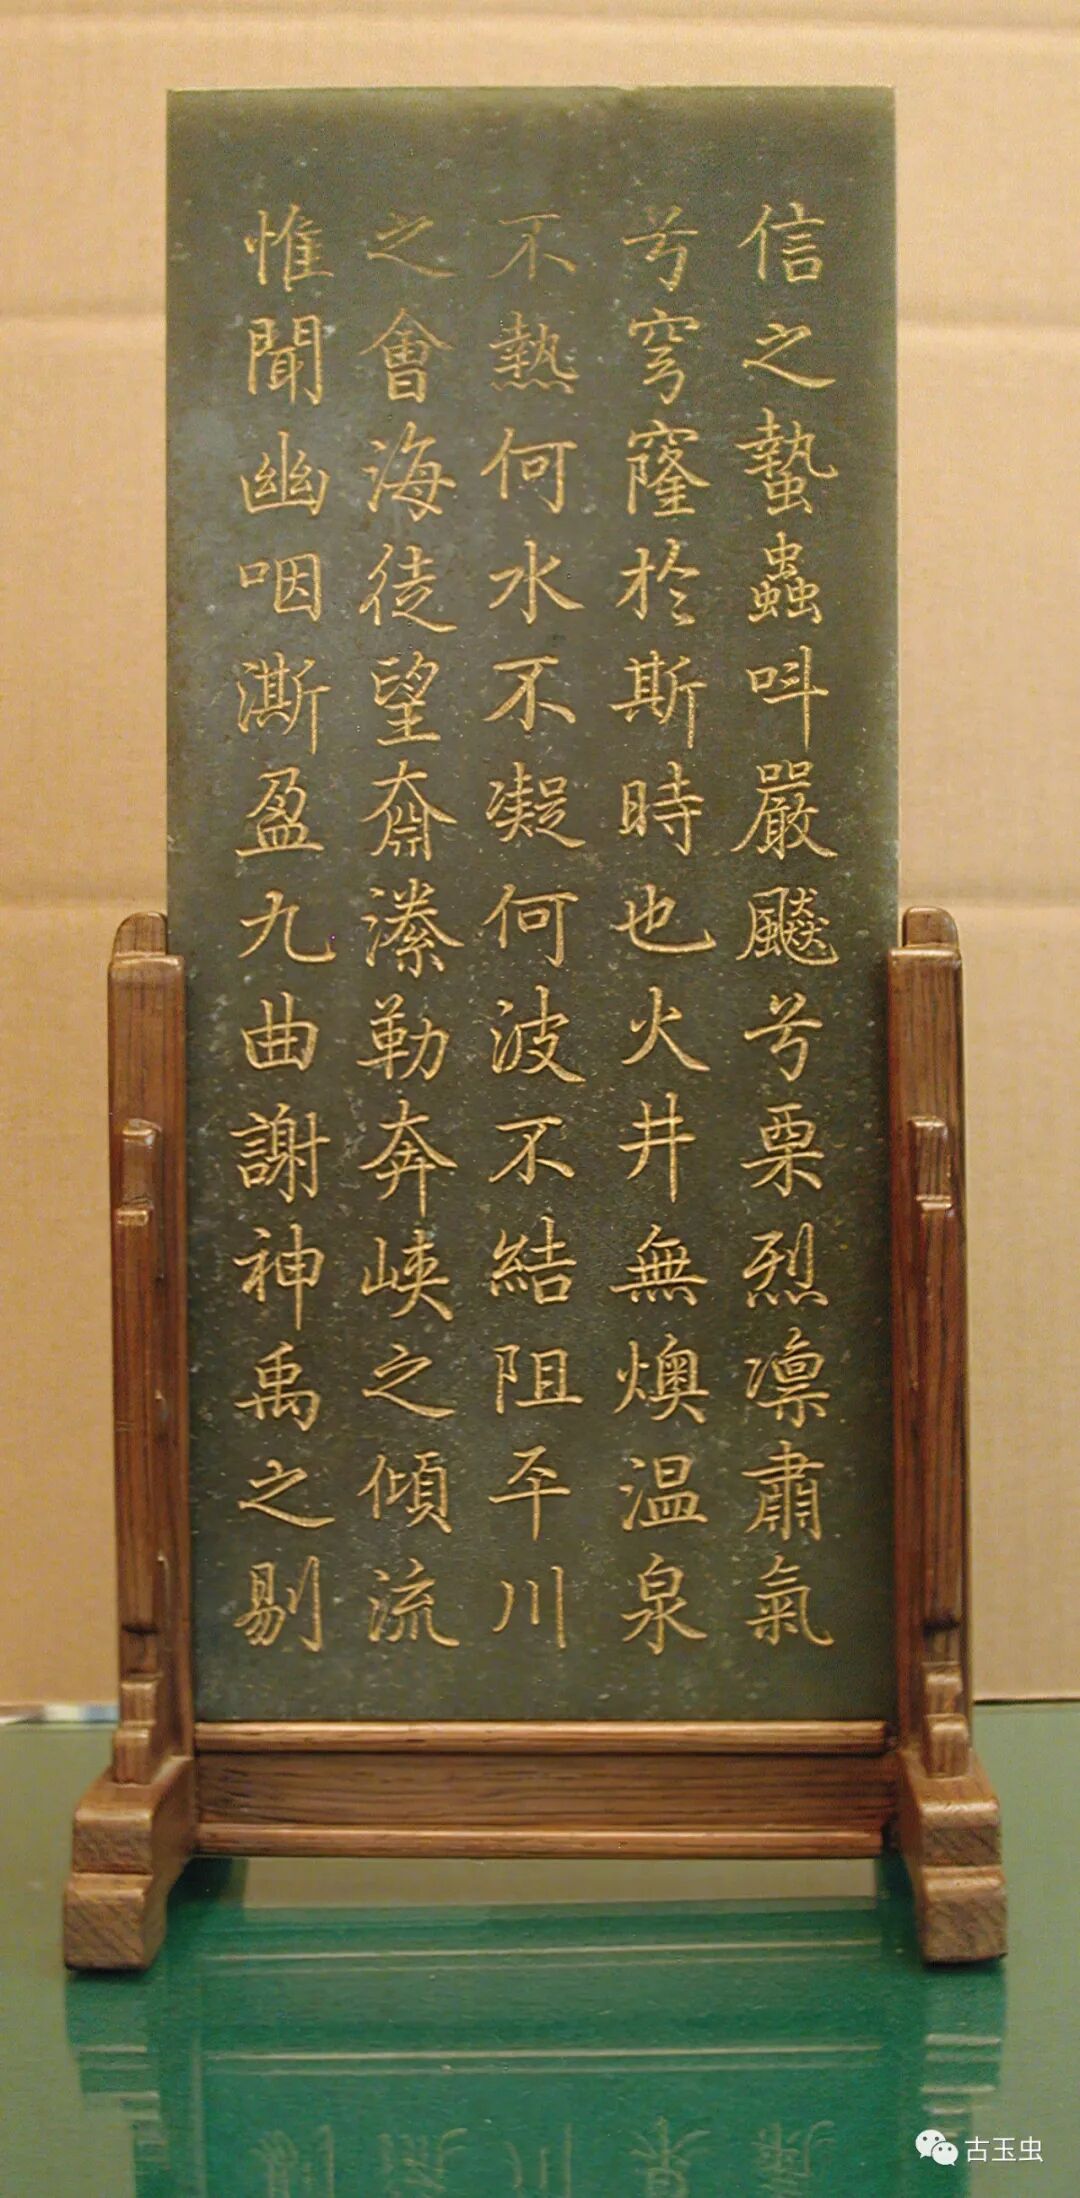 信之蟄蟲呌嚴飈兮栗烈凛肅氣
兮穹窿於斯時也火井無燠温泉
不熱何水不凝何波不結阻平川
之會海徒望齋漆勒奔峽之傾流
惟聞幽咽澌盈九曲謝神禹之剔
古玉虫